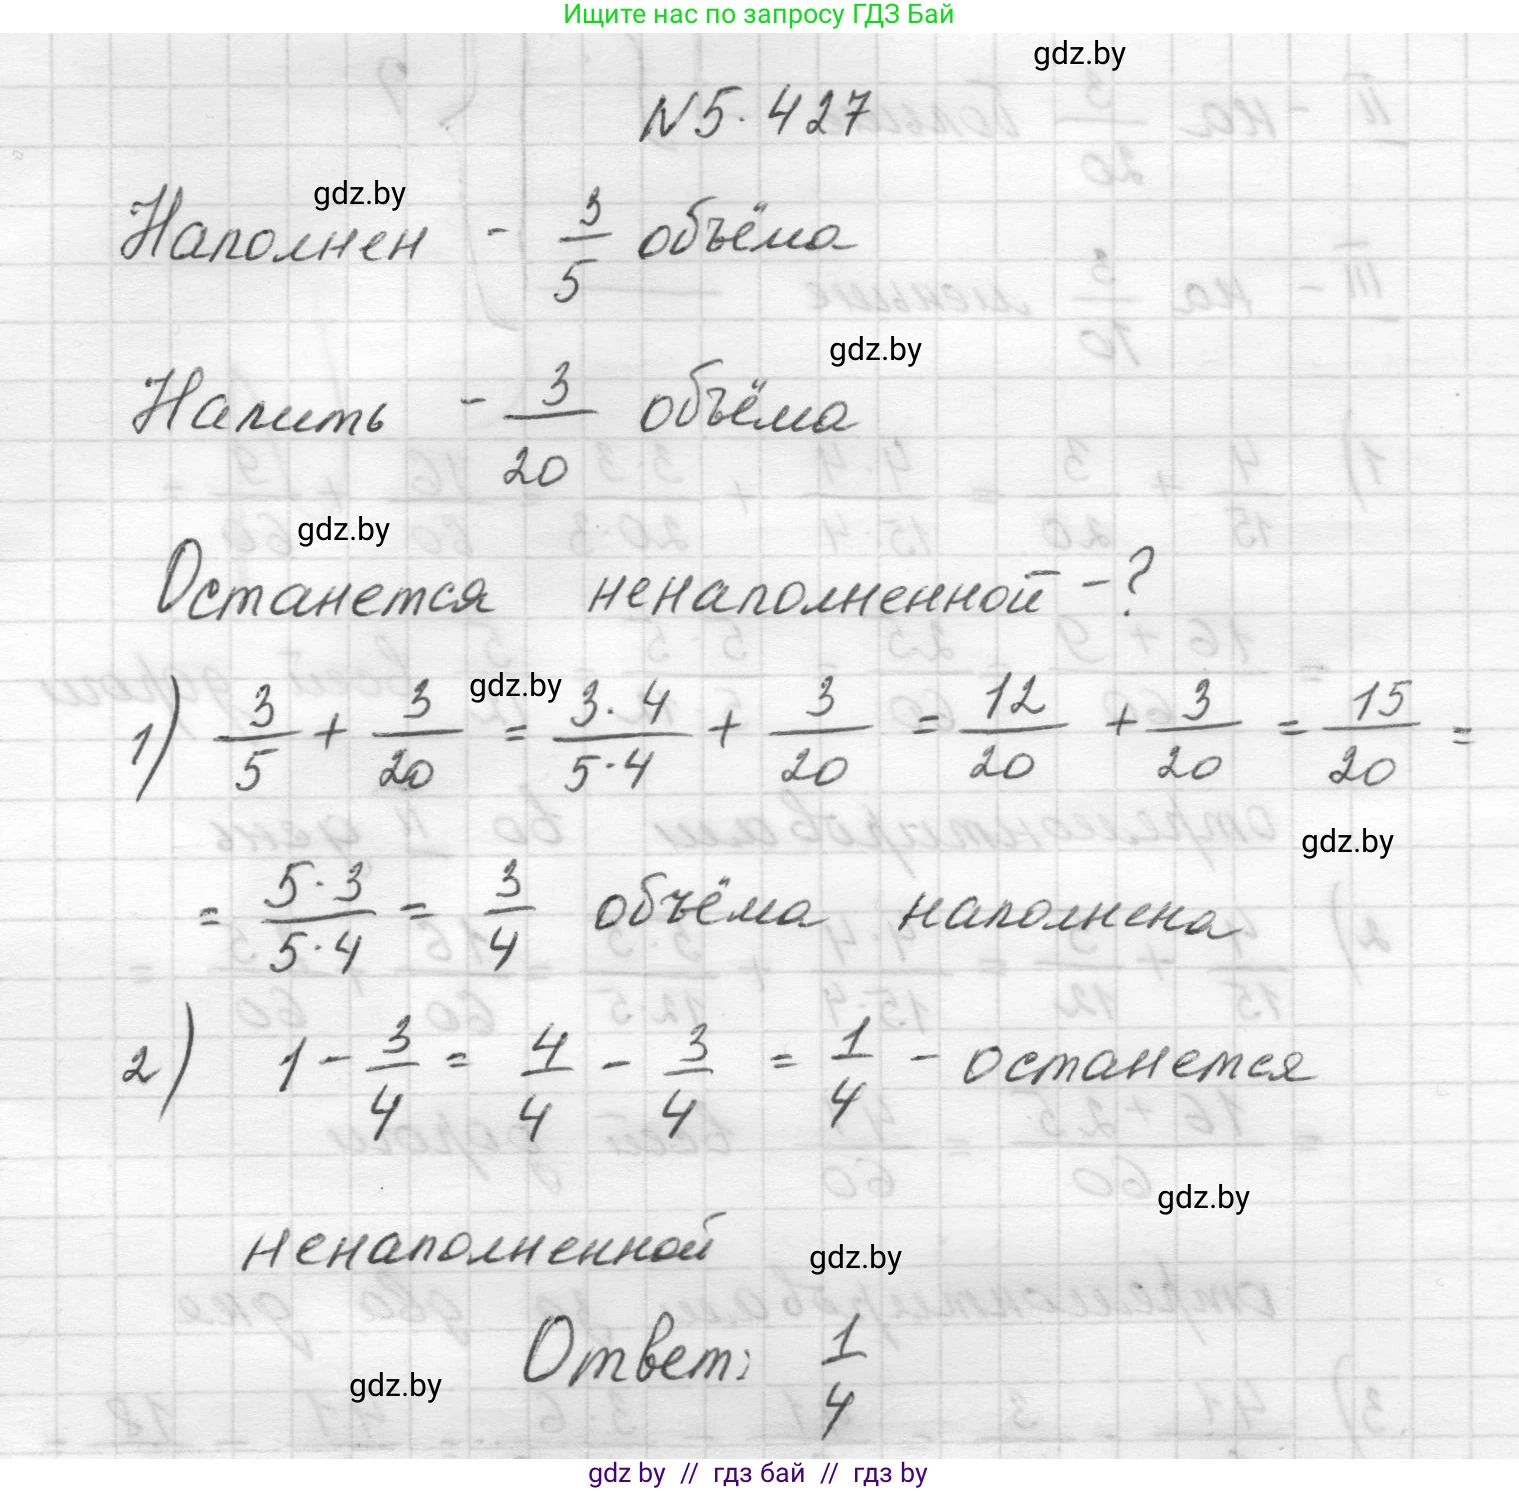 Ищите нас по запросу ГДЗ Бай
gdz.by
N5.427
gdz.by
Наполнен - 3/5 объёма
gdz.by
Налить - 3/20 объёма
gdz.by
Останется ненаполненной - ?
gdz.by
1) 3/5 + 3/20 = 3·4/5·4 + 3/20 = 12/20 + 3/20 = 15/20 =
gdz.by
= 5·3/5·4 = 3/4 объёма наполнена
2) 1 - 3/4 = 4/4 - 3/4 = 1/4 - останется
gdz.by
ненаполненной
gdz.by
Ответ: 1/4
gdz.by
gdz by // гдз бай // гдз by